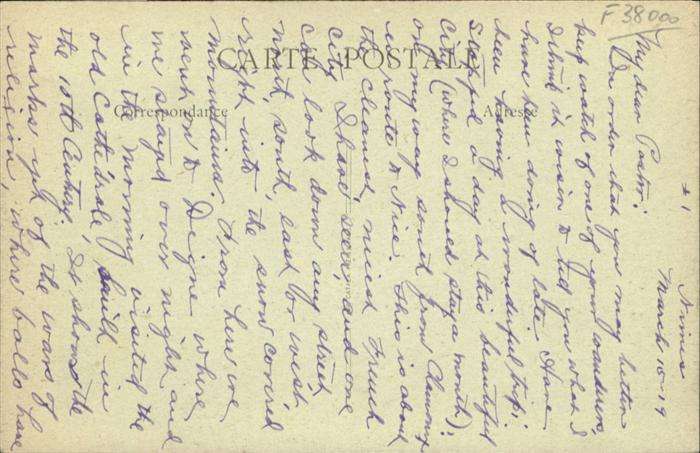 F 38000
CARTE POSTALE
Correspondance
Adresse
#1
Nimes
March 15-19
My dear Pastor:
In order that you may better
keep watch of one of your wanderers,
I think it wise to tell you what I
have been doing of late. Have
been having a wonderful trip.
Stopped a day at this beautiful
city (where I should stay a month);
on my way south from Chamonix
en route to Nice. This is about
the cleanest, nicest French
city I have seen, and one
can look down any street
north, south, east or west,
right into the snow covered
mountains. From here we
went on to Digne where
we stayed over night and
in the morning visited the
old Cathedrale, built in
the 10th Century. It shows the
marks yet of the wars of
religion, where balls have